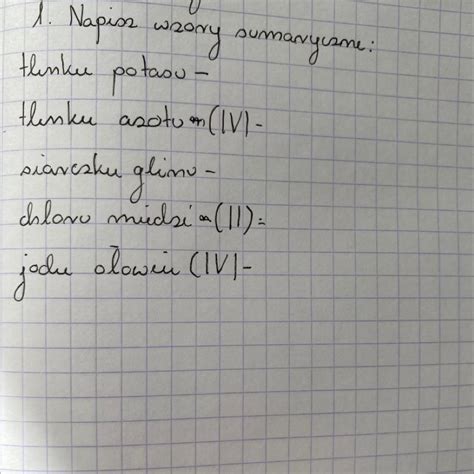 1. Napisz wzory sumaryczne:
tlenku potasu -
tlenku azotu (IV) -
siarczku glinu -
chloru miedzi (II) =
jodu ołowiu (IV) -